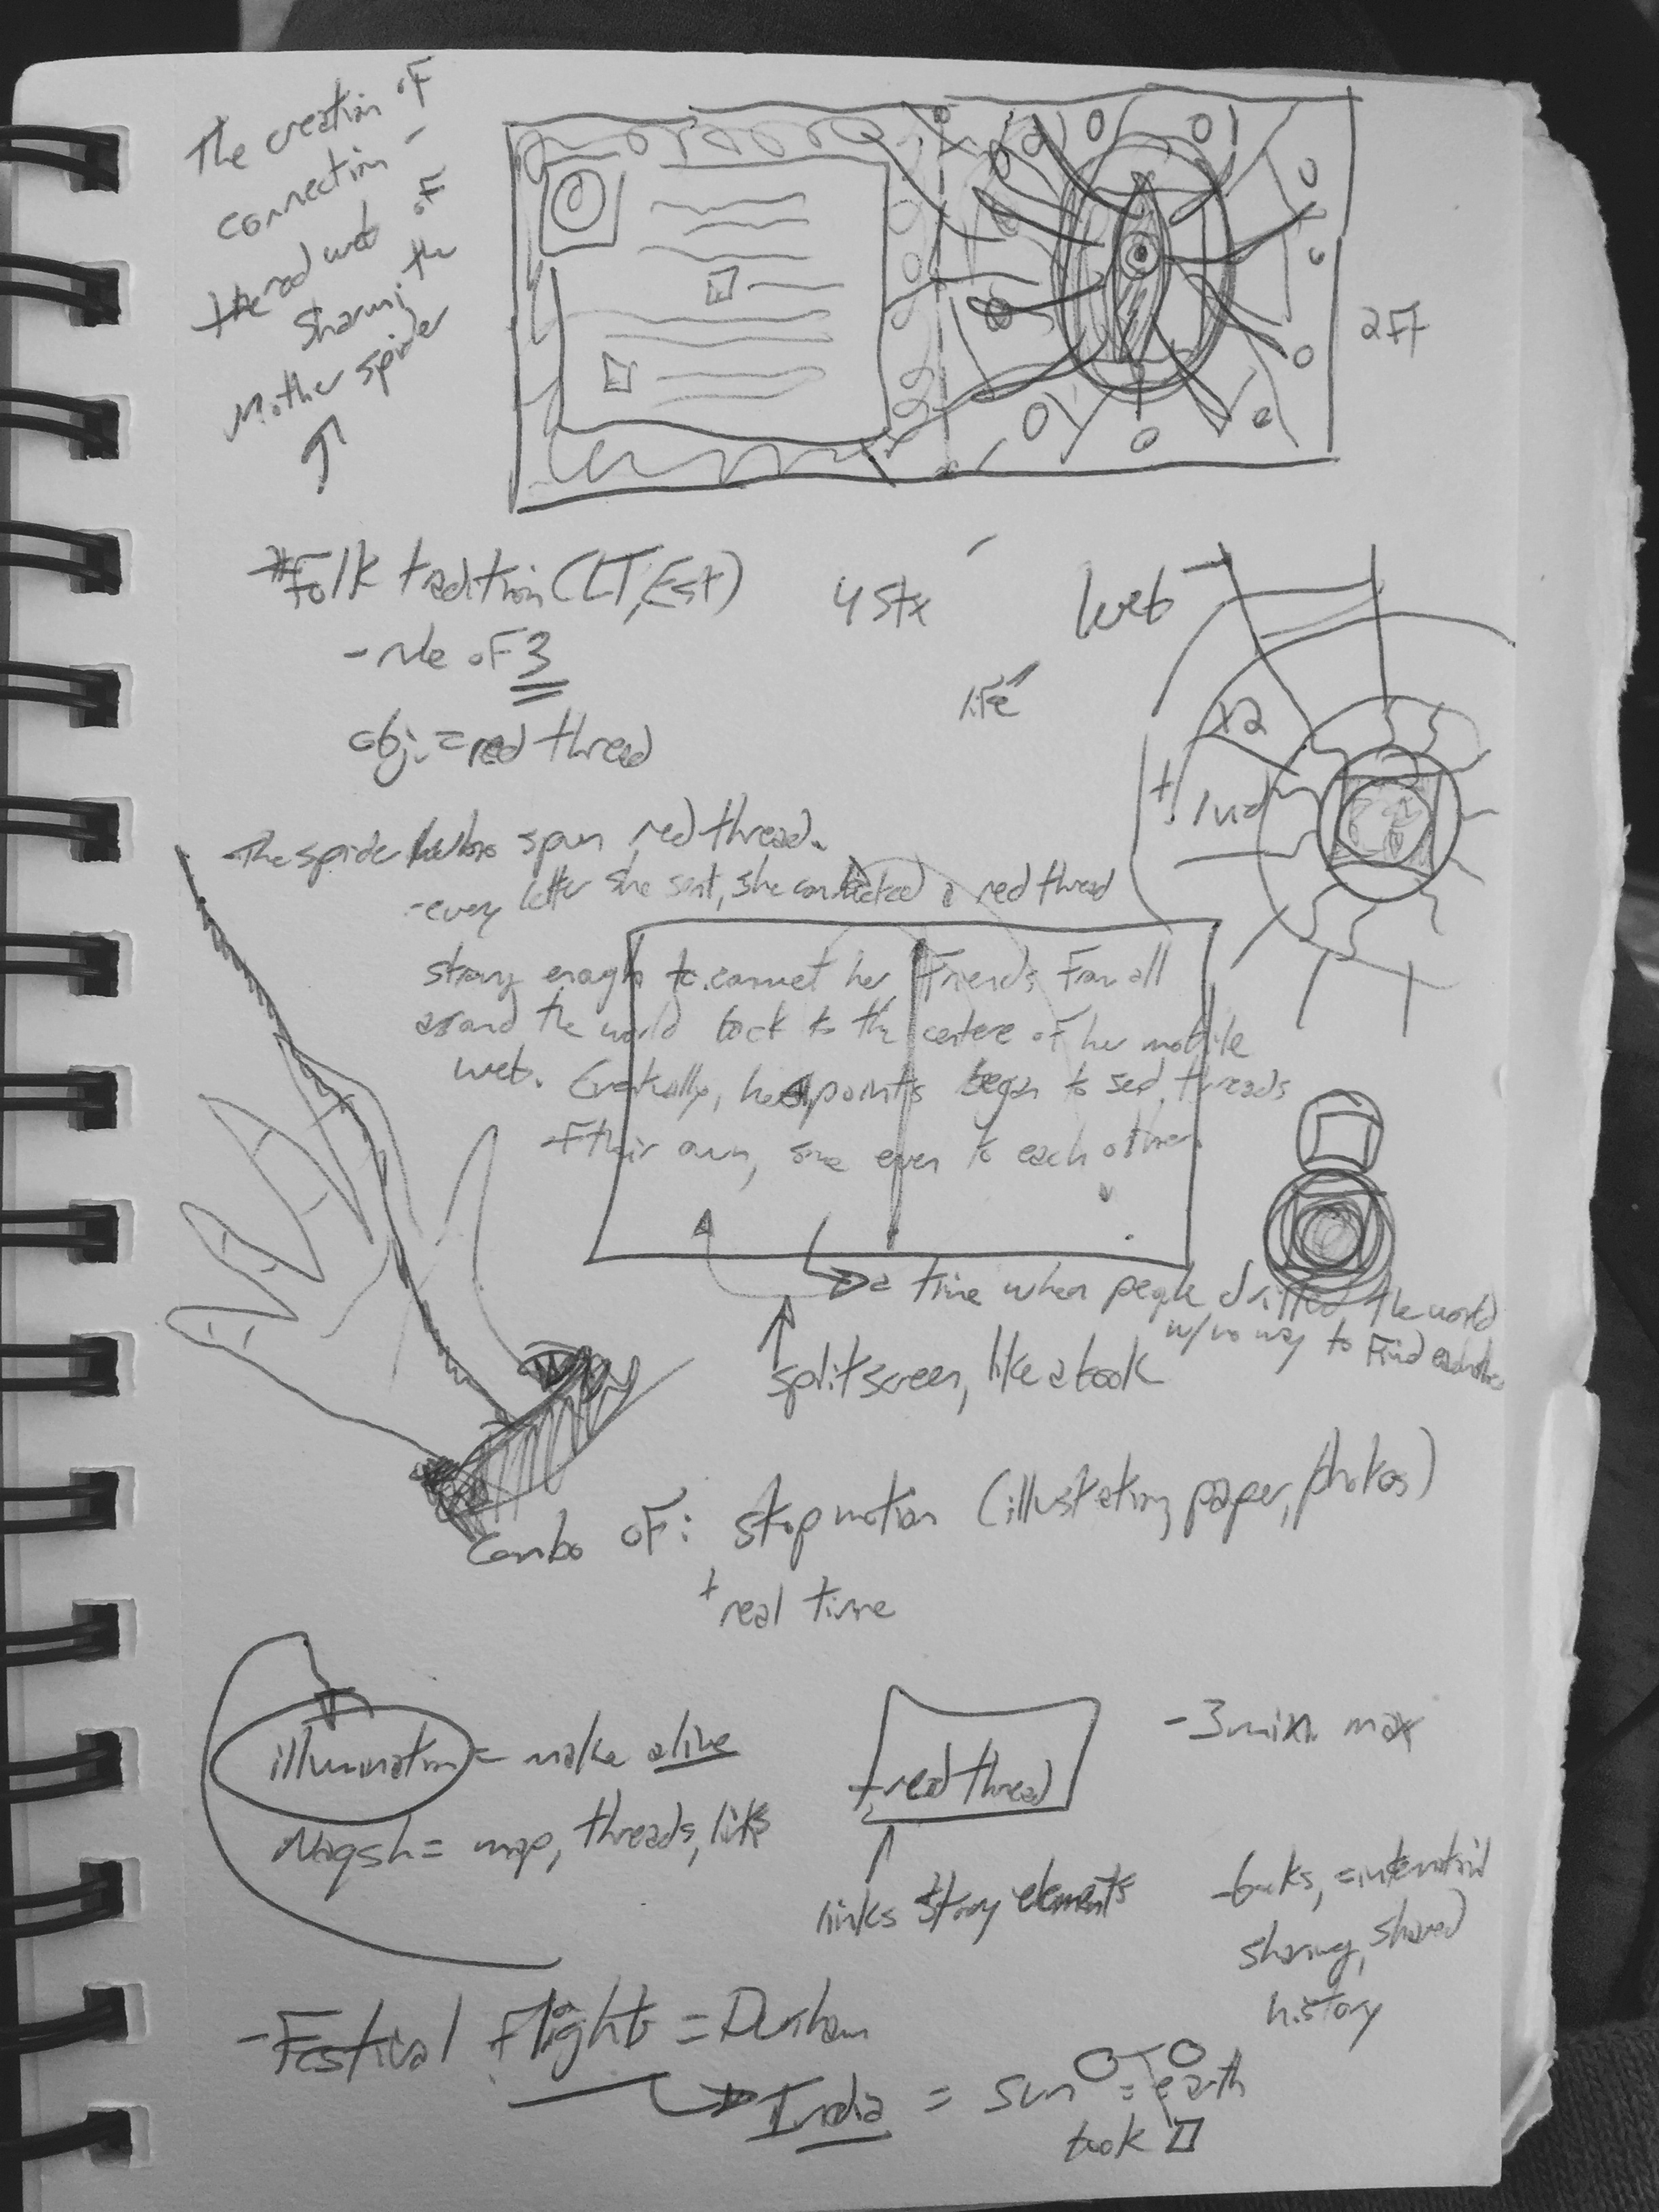 The creation of
connection -
the red web of
sharing the
Mother spider
2 Ft
*Folk tradition (LT, Est)
4 stx
web
- rule of 3
life
x2
obj. = red thread
+ 1 ud
The spider who spun red thread.
- every letter she sent, she connected a red thread
strong enough to connect her friends from all
around the world back to the centere of her mobile
web. Gradually, her points began to send threads
of their own, some even to each other.
a time when people drifted the world
w/ no way to find each other
split screen, like a book
Combo of: stop motion (illustrating, paper, photos)
+ real time
illumination = make alive
- 3 min. max
red thread
Naqsh = map, threads, links
links story elements
- books, = intentional
sharing, shared
history
- Festival flight = Durham
India = sun = earth
book